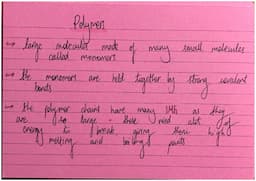 Polymers
→ large molecules made of many small molecules
called monomers
→ the monomers are held together by strong covalent
bonds
→ the polymer chains have many IMFs as they
are so large - these need alot of
energy to break giving them high
melting and boiling points